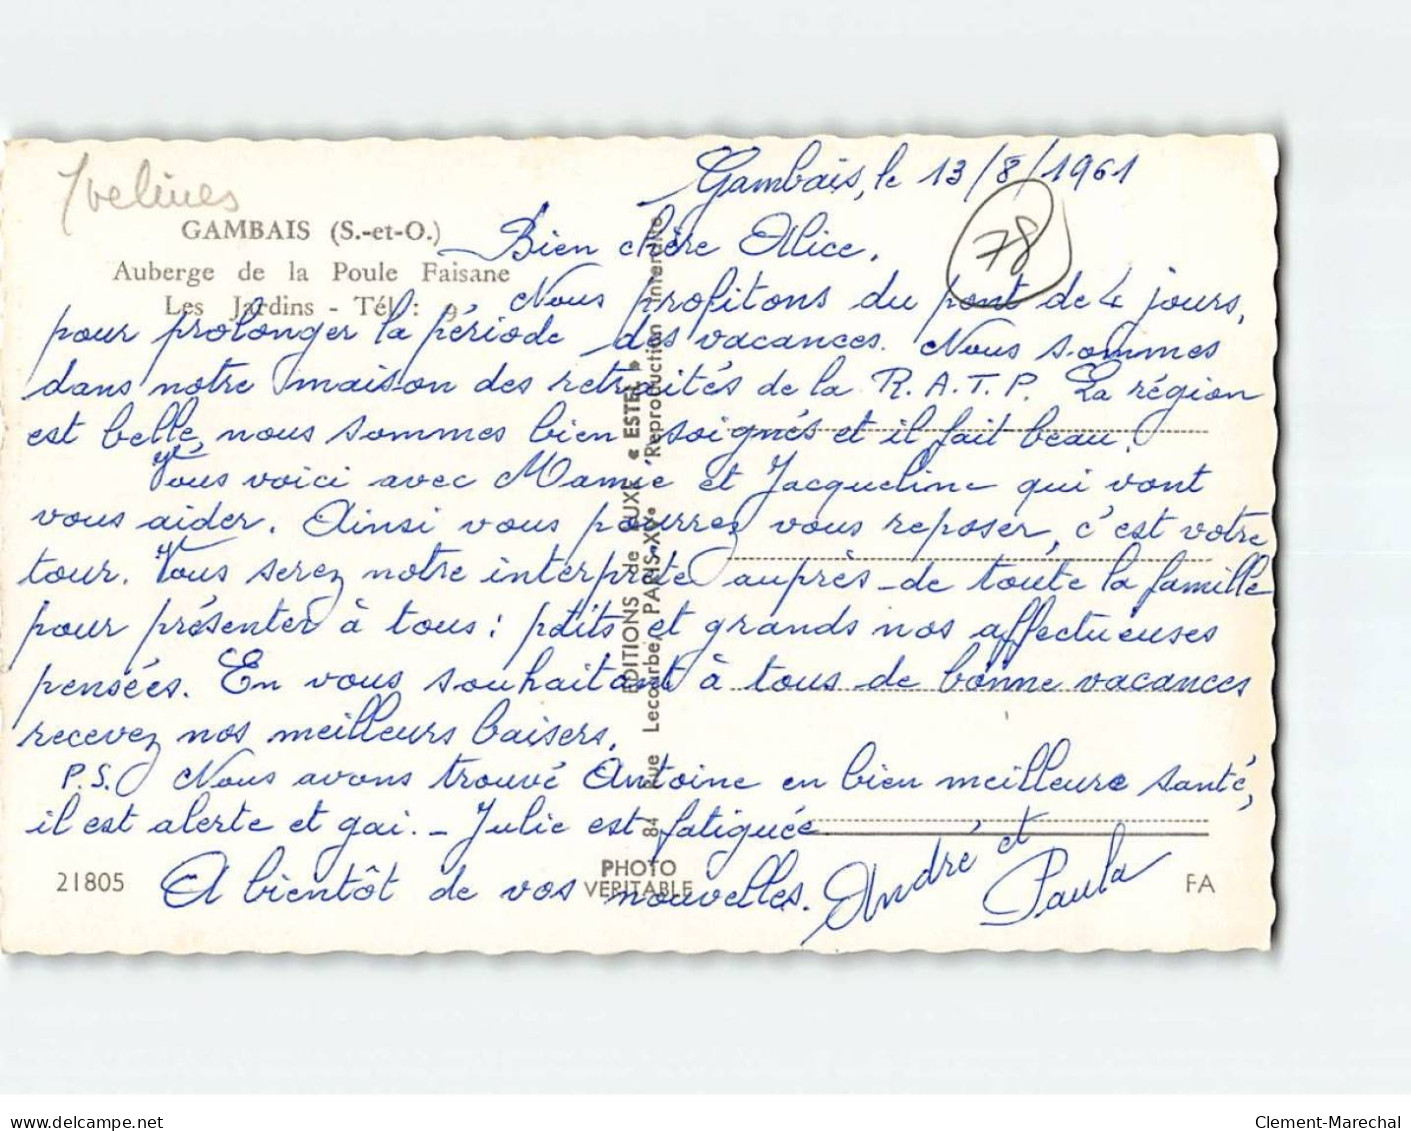 Yvelines
GAMBAIS (S.-et-O.)
Auberge de la Poule Faisane
Les Jardins - Tél : 9
Gambais, le 13/8/1961
78
Bien chère Alice,
Nous profitons du pont de 4 jours,
pour prolonger la période des vacances. Nous sommes
dans notre maison des retraités de la R.A.T.P. La région
est belle, nous sommes bien soignés et il fait beau.
Vous voici avec Mamie et Jacqueline qui vont
vous aider. Ainsi vous pourrez vous reposer, c'est votre
tour. Vous serez notre interprète auprès de toute la famille
pour présenter à tous : ptits et grands nos affectueuses
pensées. En vous souhaitant à tous de bonne vacances
recevez nos meilleurs baisers.
P.S. Nous avons trouvé Antoine en bien meilleure santé,
il est alerte et gai. - Julie est fatiguée
A bientôt de vos nouvelles. André et
Paula
EDITIONS de LUXE « ESTEL »
84 Rue Lecourbe, PARIS-XVe Reproduction Interdite
PHOTO
VERITABLE
21805
FA
www.delcampe.net
Clement-Marechal